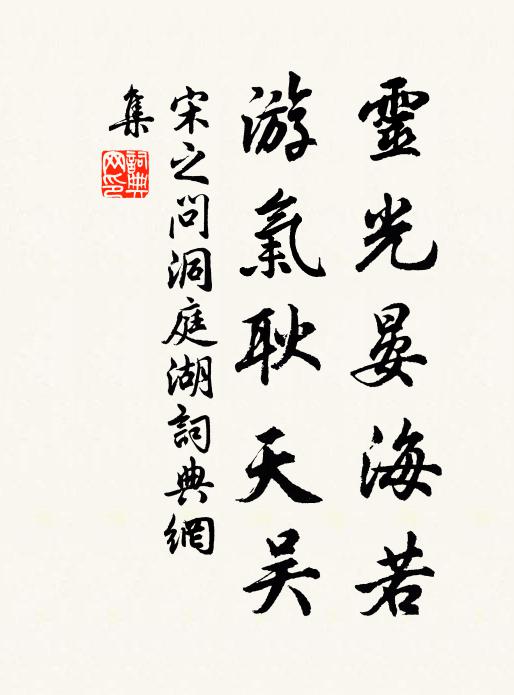 靈光晏海若
游氣耿天吴
宋之問洞庭湖詞典網
集
詞典
网印